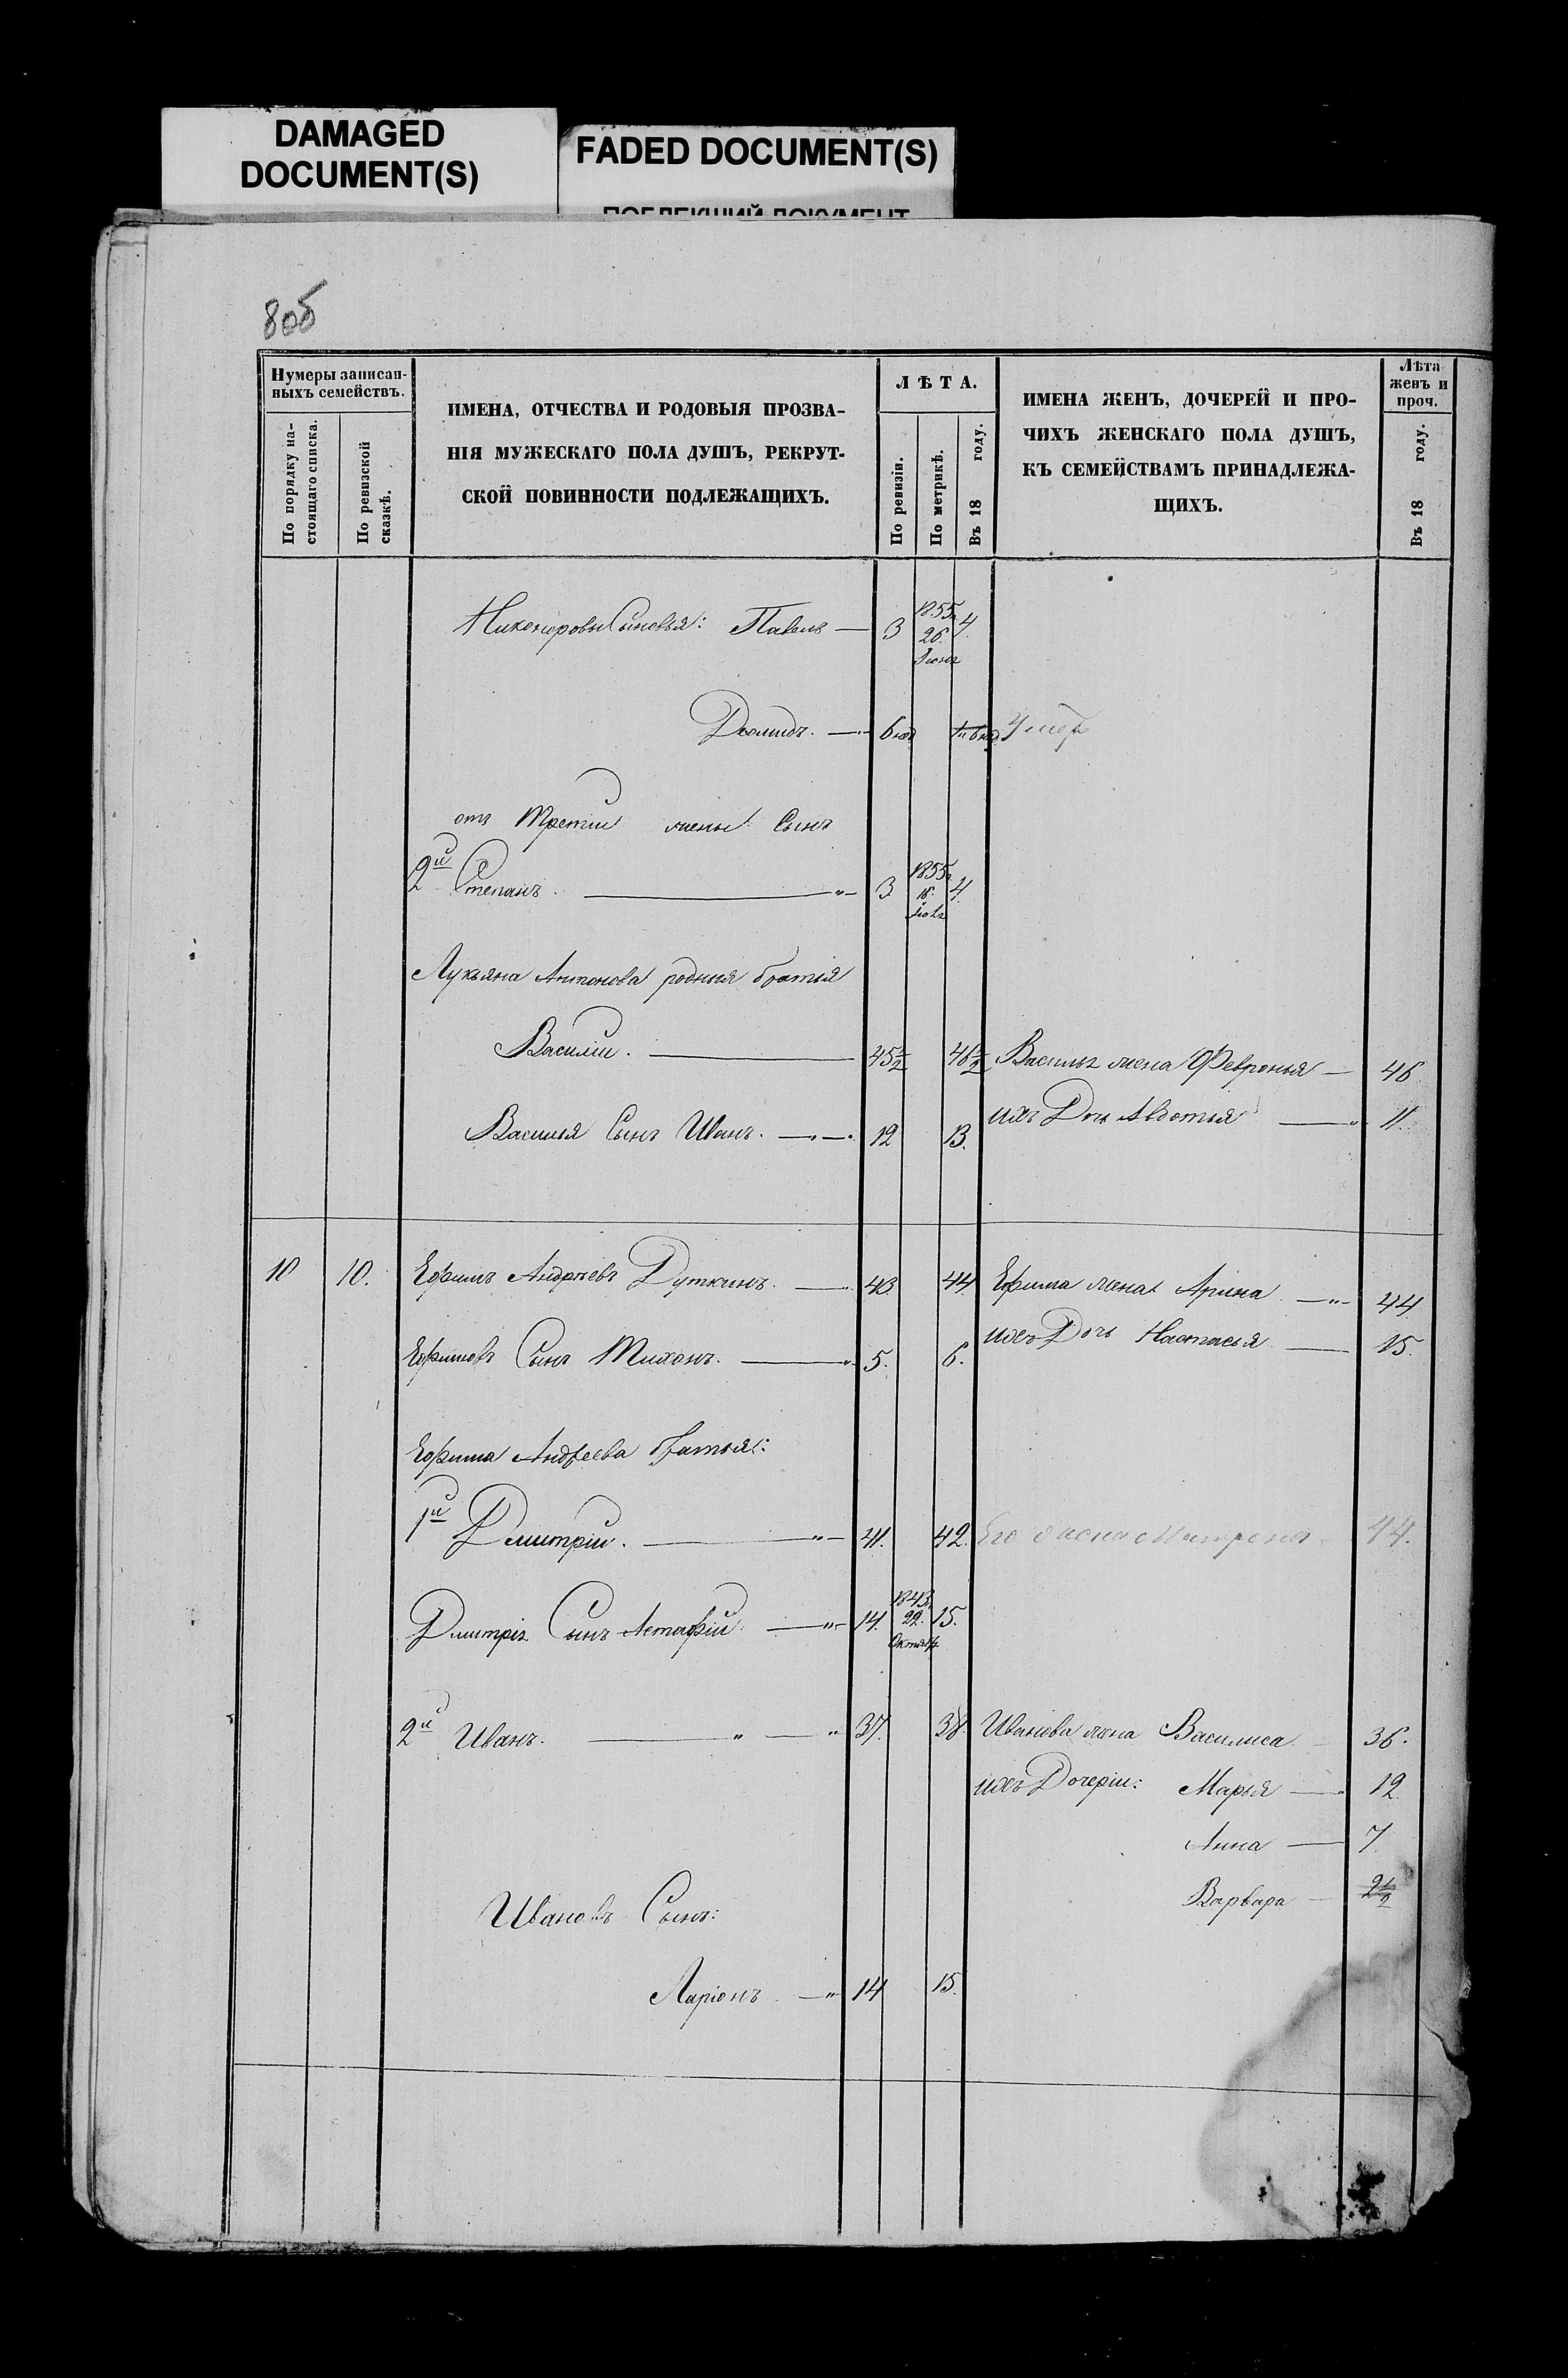 DAMAGED
DOCUMENT(S)
FADED DOCUMENT(S)
ПОБЛЕКШИЙ ДОКУМЕНТ
8об
Нумеры записан-
ныхъ семействъ.
По порядку на-
стоящаго списка.
По ревизской
сказкѣ.
ИМЕНА, ОТЧЕСТВА И РОДОВЫЯ ПРОЗВА-
НІЯ МУЖЕСКАГО ПОЛА ДУШЪ, РЕКРУТ-
СКОЙ ПОВИННОСТИ ПОДЛЕЖАЩИХЪ.
ЛѢТА.
По ревизіи.
По метрикѣ.
Въ 18 году.
ИМЕНА ЖЕНЪ, ДОЧЕРЕЙ И ПРО-
ЧИХЪ ЖЕНСКАГО ПОЛА ДУШЪ,
КЪ СЕМЕЙСТВАМЪ ПРИНАДЛЕЖА-
ЩИХЪ.
Лѣта
женъ и
проч.
Въ 18 году.
Никоноровы Сыновья: Павелъ — 3 1855 26 4.
6 нед Умеръ
отъ Третіи жены Сынъ
2й Степанъ. — 3 1855 4.
Лукьяна Антонова родныя братья
Василіи. — 45½ 46½ Василья жена Февронья — 46
Василья Сынъ Иванъ. — 12 13. ихъ Дочь Авдотья — 11.
10 10. Ефимъ Андреевъ Дуткинъ. — 43 44 Ефима жена Арина — 44
Ефимовъ Сынъ Тихонъ. — 5. 6. ихъ Дочь Настасья — 15.
Ефима Андреева братья:
1й Дмитріи. — 41. 42. Его жена Матрена 44.
Дмитрія Сынъ Астафіи — 14. 1843 22. Октябр 15.
2й Иванъ. — 37. 38. Иванова жена Василиса 36.
ихъ Дочеріи: Марья — 12.
Анна — 7.
Варвара — 2½
Ивановъ Сынъ:
Ларіонъ — 14 15.